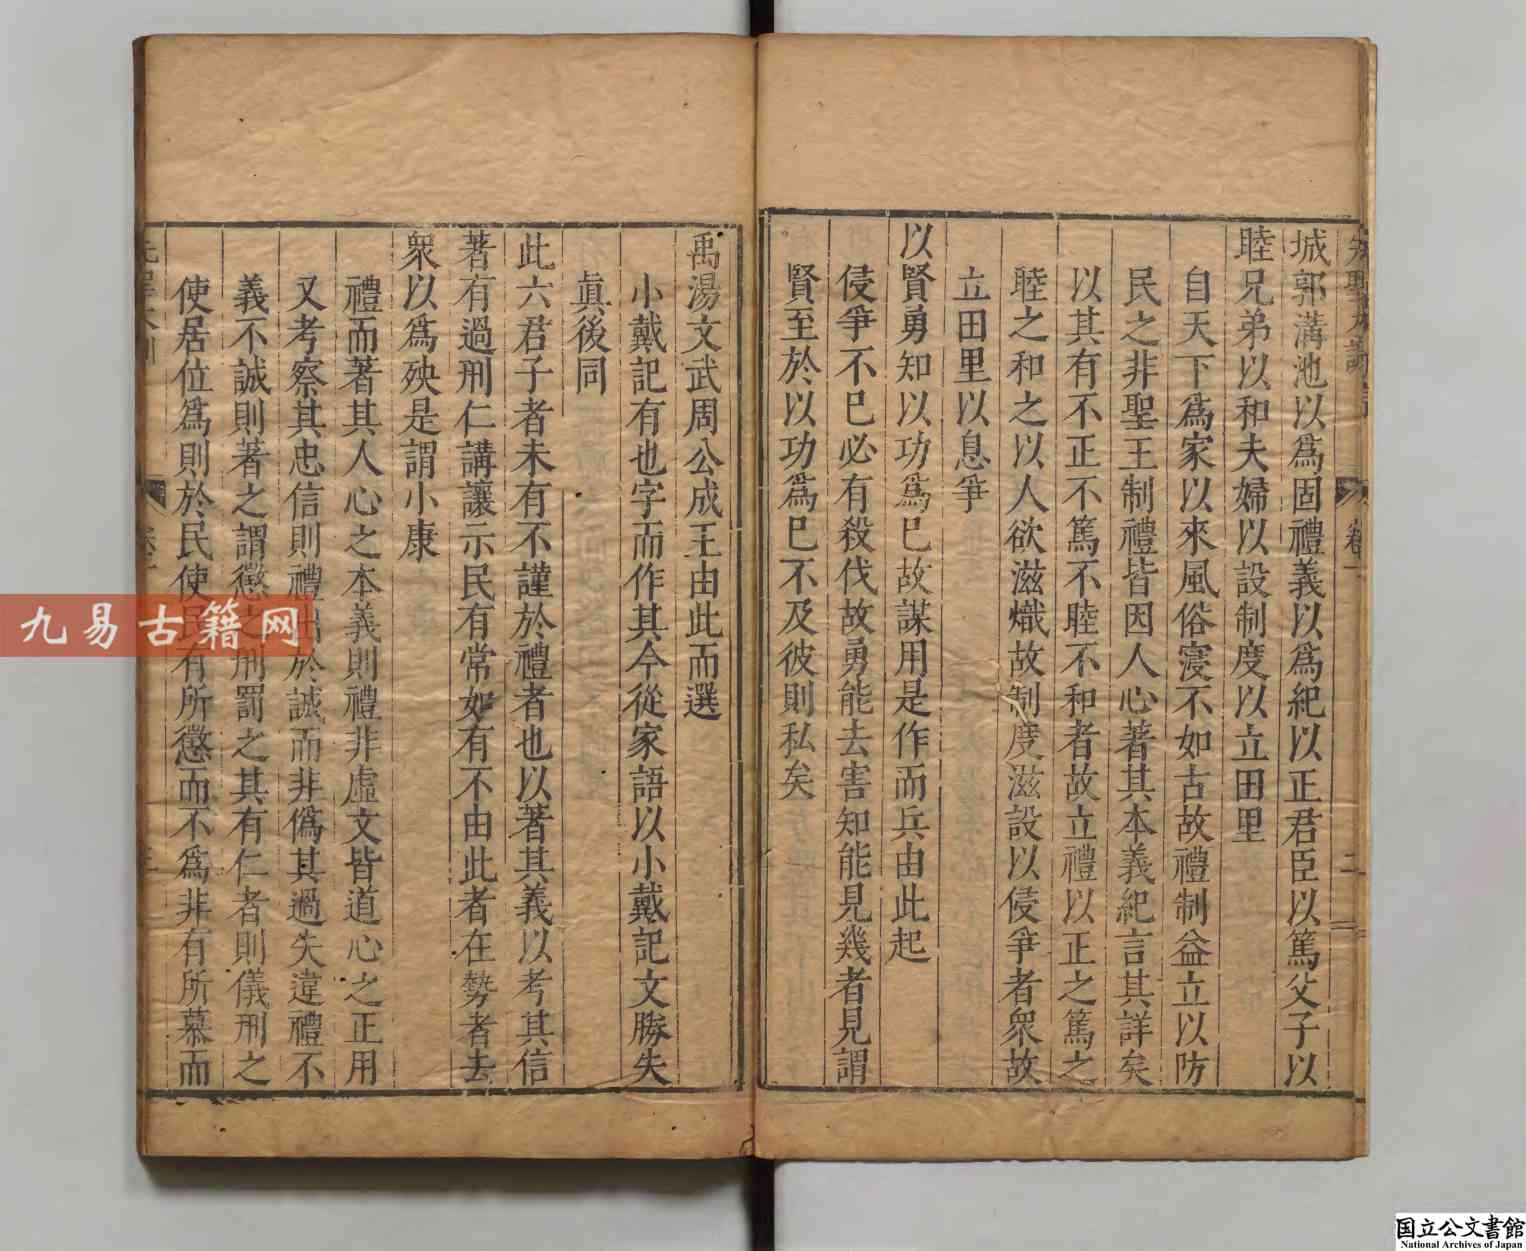 城郭溝池以爲固禮義以爲紀以正君臣以篤父子以
睦兄弟以和夫婦以設制度以立田里
自天下爲家以來風俗寖不如古故禮制益立以防
民之非聖王制禮皆因人心著其本義紀言其詳矣
以其有不正不篤不睦不和者故立禮以正之篤之
睦之和之以人欲滋熾故制度滋設以侵爭者衆故
立田里以息爭
以賢勇知以功爲已故謀用是作而兵由此起
侵爭不已必有殺伐故勇能去害知能見幾者見謂
賢至於以功爲已不及彼則私矣
卷一
二
禹湯文武周公成王由此而選
小戴記有也字而作其今從家語以小戴記文勝失
眞後同
此六君子者未有不謹於禮者也以著其義以考其信
著有過刑仁講讓示民有常如有不由此者在勢者去
衆以爲殃是謂小康
禮而著其人心之本義則禮非虛文皆道心之正用
又考察其忠信則禮出於誠而非僞其過失違禮不
義不誠則著之謂懲之刑罰之其有仁者則儀刑之
使居位爲則於民使民有所懲而不爲非有所慕而
九易古籍网
国立公文書館
National Archives of Japan